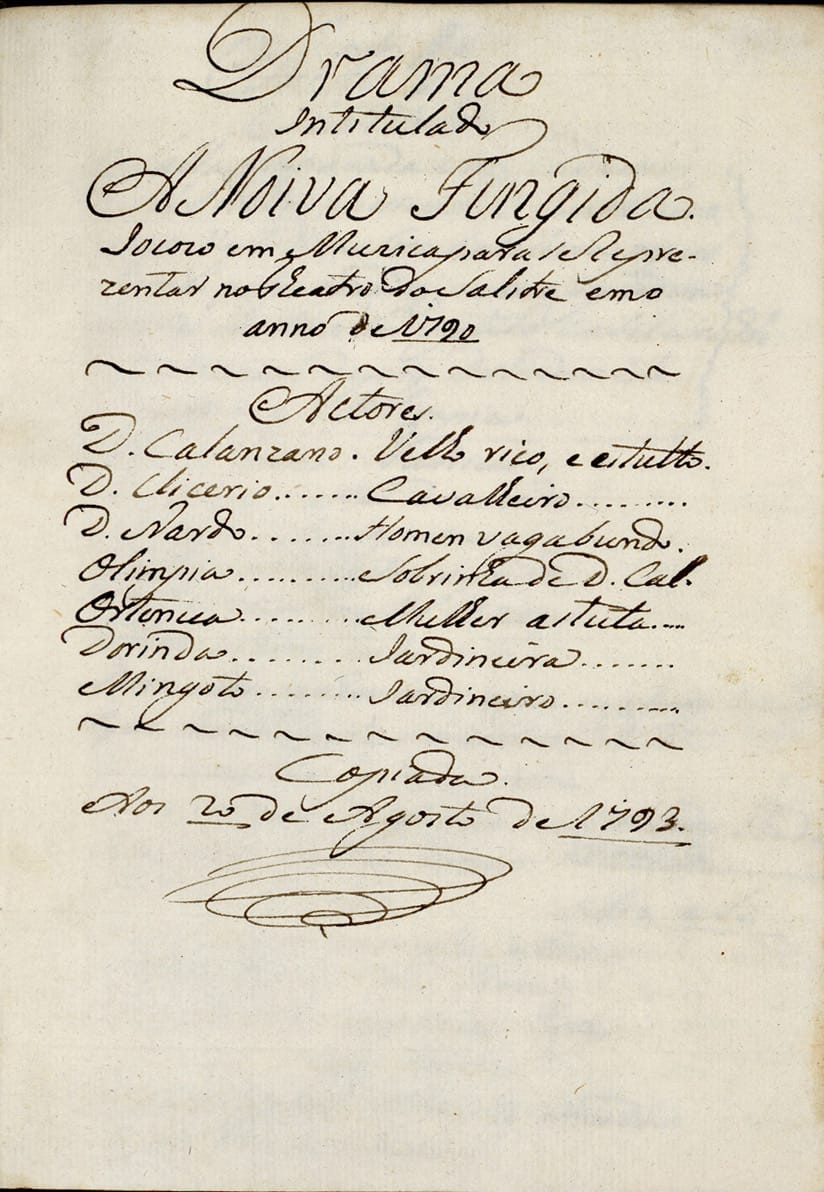 Drama
Intitulado
A Noiva Fingida.
Jocozo em Muzica para se Repre-
zentar no Theatro do Salitre em o
anno de 1790
Actores.
D. Calanzano. Velho rico, e estulto.
D. Clicerio....... Cavalheiro.........
D. Nardo........ Homen vagabundo.
Olimpia.......... Sobrinha de D. Cal.
Ortencia.......... Mulher astuta....
Dorinda......... Jardineira.......
Mingoto......... Jardineiro..........
Copiada.
Aos 20 de Agosto de 1793.